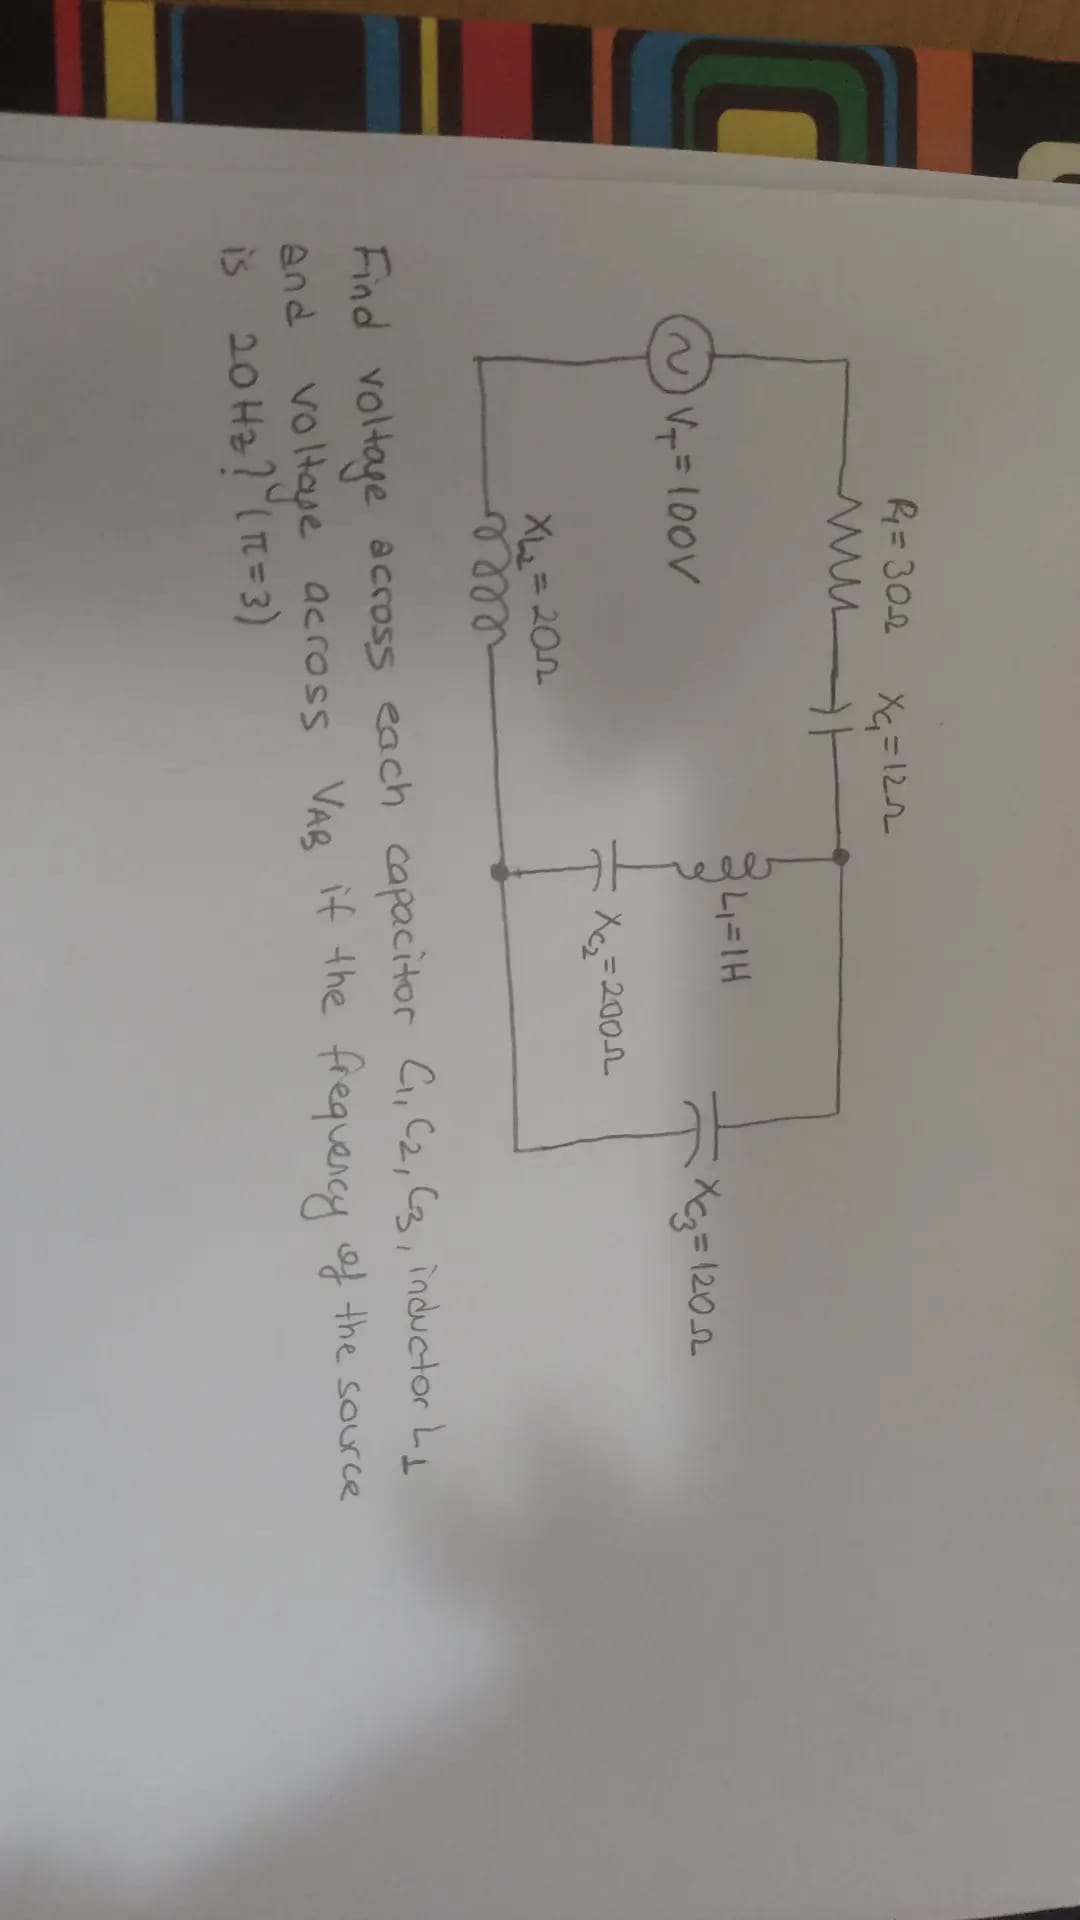 R₁=30Ω X𝒸₁=12Ω
V_T=100V
L₁=1H
X𝒸₂=200Ω
X𝒸₃=120Ω
X_L₂=20Ω
Find voltage across each capacitor C₁, C₂, C₃, inductor L₁
and voltage across V_AB if the frequency of the source
is 20Hz? (π=3)